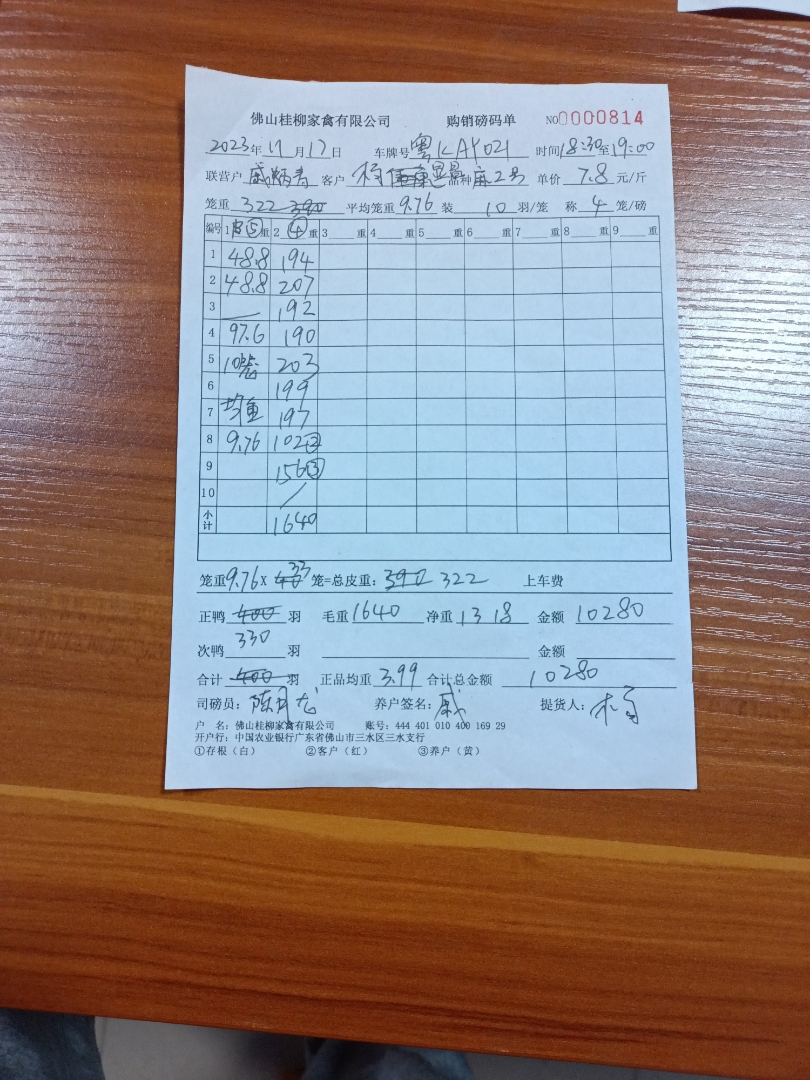 佛山桂柳家禽有限公司 购销磅码单 NO0000814
2023年11月17日 车牌号粤KAY021 时间18:30至19:00
联营户 客户 品种麻2号 单价7.8元/斤
笼重322 390 平均笼重9.76 装10羽/笼 称4笼/磅
编号 1⑤重 2④重 3重 4重 5重 6重 7重 8重 9重
1 48.8 194
2 48.8 207
3 — 192
4 97.6 190
5 10笼 203
6 199
7 均重 197
8 9.76 102②
9 156③
10 /
小计 1640
笼重9.76X 40 33笼=总皮重：390 322 上车费
正鸭400羽 毛重1640 净重1318 金额10280
330
次鸭羽 金额
合计400羽 正品均重3.99 合计总金额10280
司磅员：陈 养户签名：戚 提货人：
户 名：佛山桂柳家禽有限公司 账号：444 401 010 400 169 29
开户行：中国农业银行广东省佛山市三水区三水支行
①存根（白） ②客户（红） ③养户（黄）